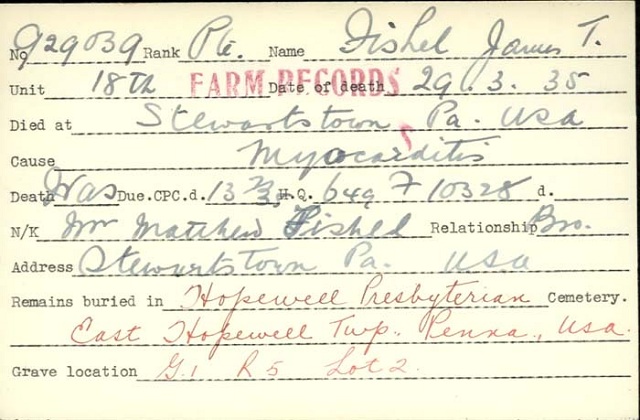 No 929039 Rank Pte. Name Fishel James T.
Unit 18th FARM RECORDS Date of death 29.3.35
Died at Stewartstown Pa. USA
Cause Myocarditis
Death Was Due. CPC.d. 13 H.Q. 649 F 10328 d.
N/K Mr Matthew Fishel Relationship Bro.
Address Stewartstown Pa. USA
Remains buried in Hopewell Presbyterian Cemetery.
East Hopewell Twp., Penna., Usa.
Grave location G.1 R5 Lot 2.